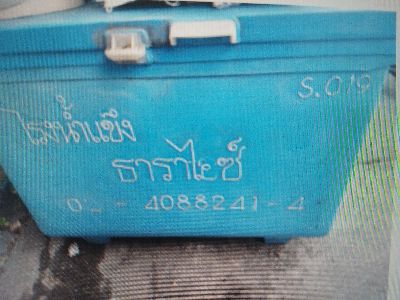 S.019
โรงน้ำแข็ง
ธาราไอซ์
0_ - 4088241 - 4